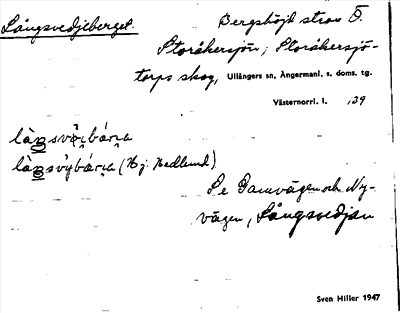 Långsvedjeberget.
Bergshöjd strax Ö.
Storåkersjön, Storåkersjö-
torps skog, Ullångers sn, Ångermanl. s. doms. tg.
Västernorrl. l. 139
(Hj. Hedlund)
Se Gamvägen och Ny-
vägen, Långsvedjan
Sven Hiller 1947